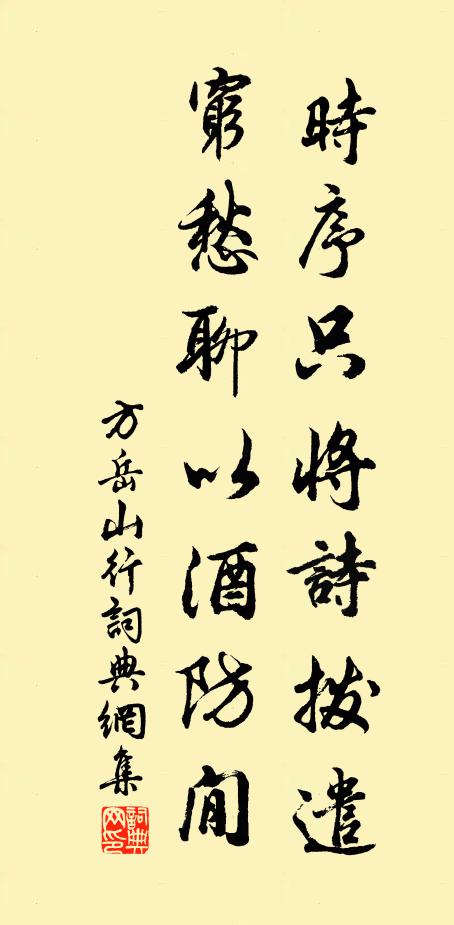 時序只將詩撥遣
窮愁聊以酒防閒
方岳山行詞典網集
詞典網印